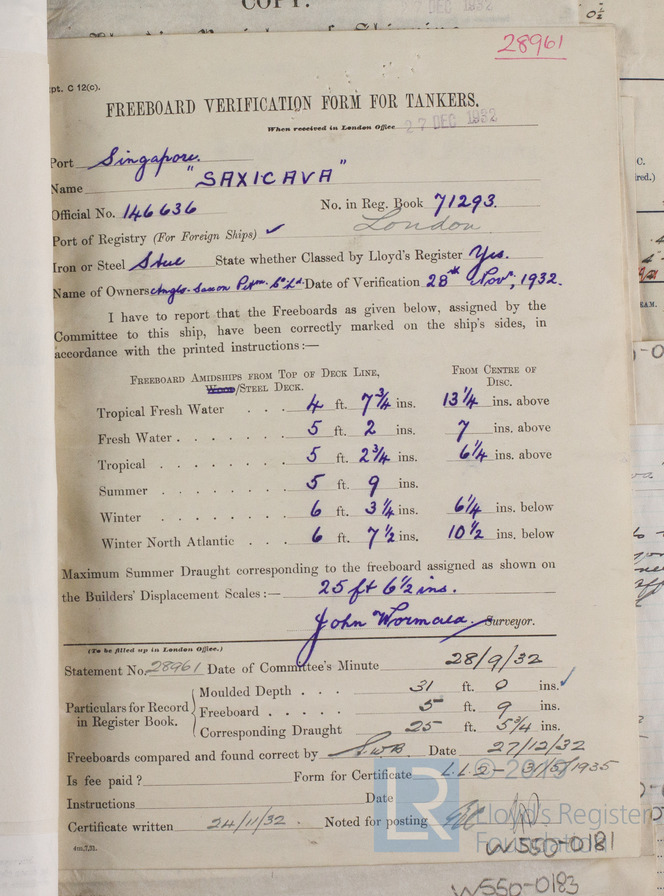 COPY.
27 DEC 1932
28961
pt. C 12(c).
FREEBOARD VERIFICATION FORM FOR TANKERS.
When received in London Office 27 DEC 1932
Port Singapore.
Name "SAXICAVA"
Official No. 146636 No. in Reg. Book 71293.
Port of Registry (For Foreign Ships) ✓ London
Iron or Steel Steel State whether Classed by Lloyd's Register Yes.
Name of Owners Anglo-Saxon Petm. Co Ld. Date of Verification 28th Novr, 1932.
I have to report that the Freeboards as given below, assigned by the
Committee to this ship, have been correctly marked on the ship's sides, in
accordance with the printed instructions:—
FREEBOARD AMIDSHIPS FROM TOP OF DECK LINE, FROM CENTRE OF
Wood/STEEL DECK. DISC.
Tropical Fresh Water . . . 4 ft. 7 3/4 ins. 13 1/4 ins. above
Fresh Water . . . . . . . 5 ft. 2 ins. 7 ins. above
Tropical . . . . . . . . 5 ft. 2 3/4 ins. 6 1/4 ins. above
Summer . . . . . . . . 5 ft. 9 ins.
Winter . . . . . . . . 6 ft. 3 1/4 ins. 6 1/4 ins. below
Winter North Atlantic . . . 6 ft. 7 1/2 ins. 10 1/2 ins. below
Maximum Summer Draught corresponding to the freeboard assigned as shown on
the Builders' Displacement Scales:— 25 ft 6 1/2 ins.
John Wormald. Surveyor.
(To be filled up in London Office.)
Statement No. 28961 Date of Committee's Minute 28/9/32
Particulars for Record in Register Book.
Moulded Depth . . . 31 ft. 0 ins. ✓
Freeboard . . . . . 5 ft. 9 ins.
Corresponding Draught 25 ft. 5 3/4 ins.
Freeboards compared and found correct by Date 27/12/32
Is fee paid? Form for Certificate L.L.2 - 31/5/1935
Instructions Date
Certificate written 24/11/32. Noted for posting
4m,7,31.
LR
Lloyd's Register
Foundation
W550-0181
W550-0183